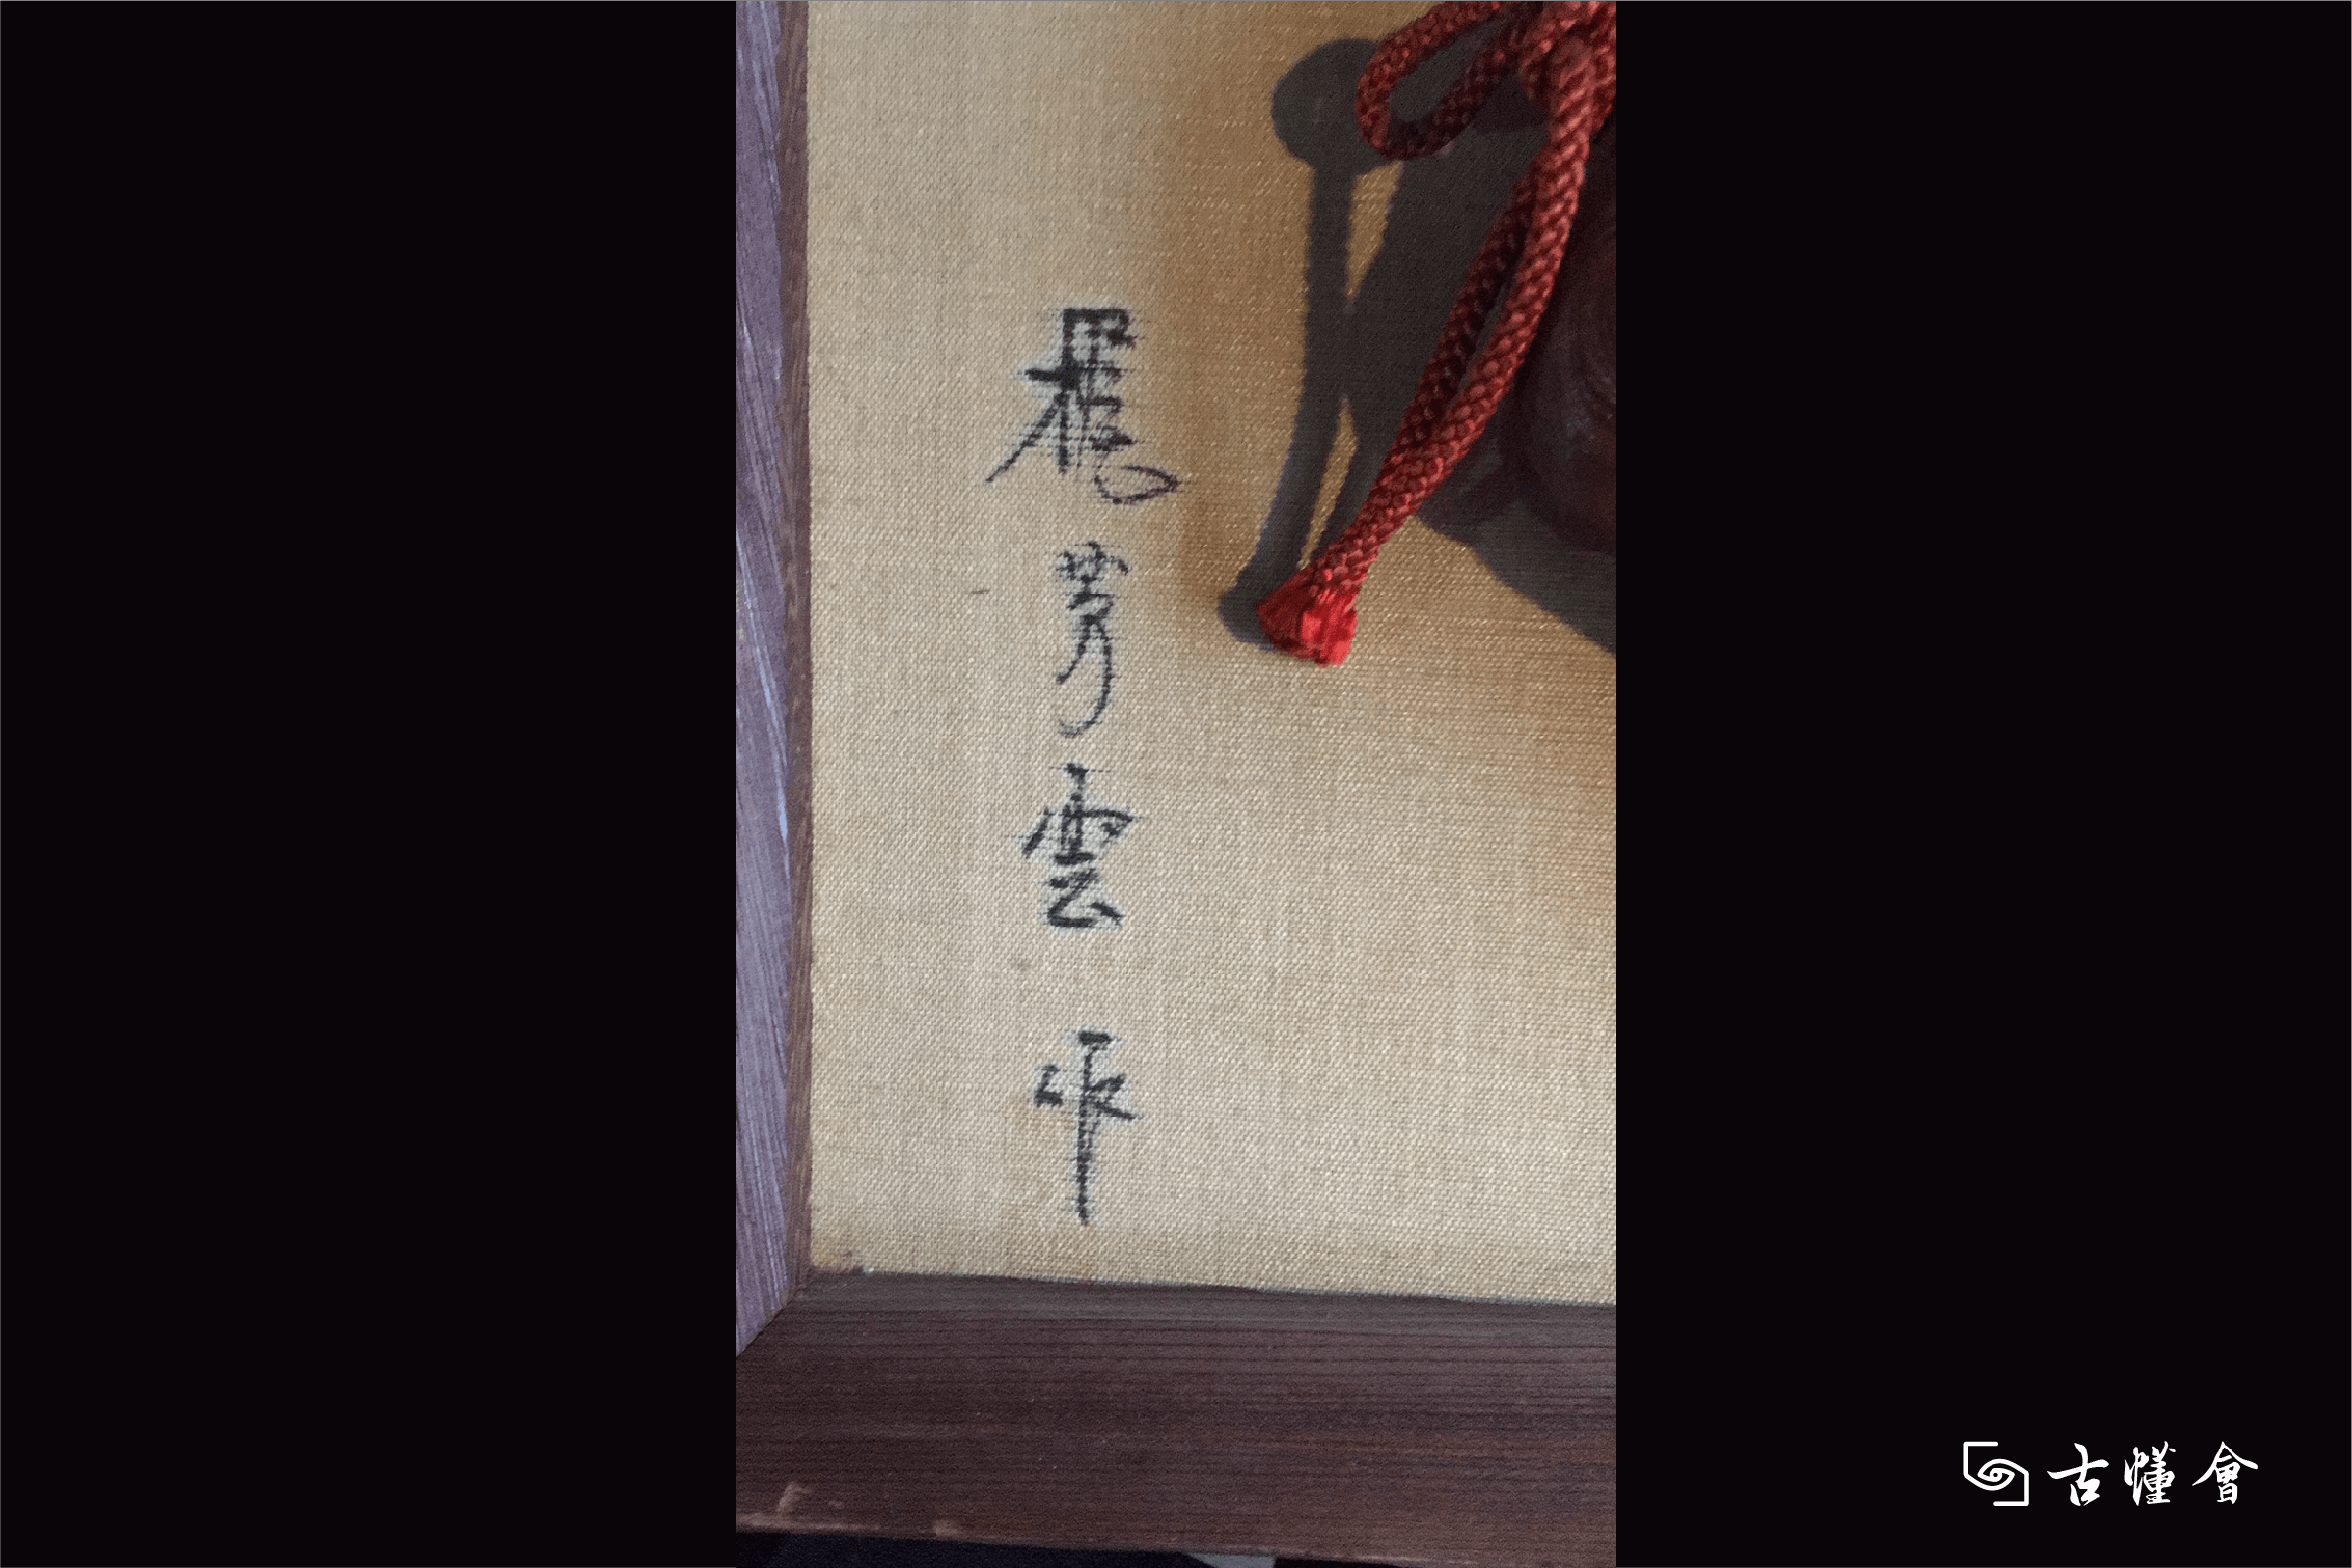 芳雲 作
古懂會